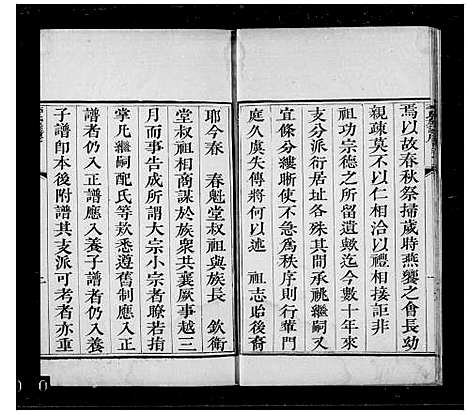 焉以故春秋祭掃歲時燕饗之會長幼
親疎莫不以仁相洽以禮相接詎非
祖功宗德之所留遺歟迄今數十年來
支分派衍居址各殊其間承祧繼嗣又
宜條分縷晰使不急為秩序則行輩門
庭久虞失傳將何以述　祖志貽後裔
耶今春　春魁堂叔祖與族長　欽衛
堂叔祖相商謀於族衆共襄厥事越三
月而事告成所謂大宗小宗者瞭若指
掌凡繼嗣配氏等欵悉遵舊制應入正
譜者仍入正譜應入養子譜者仍入養
子譜即本後附譜其支派可考者亦重